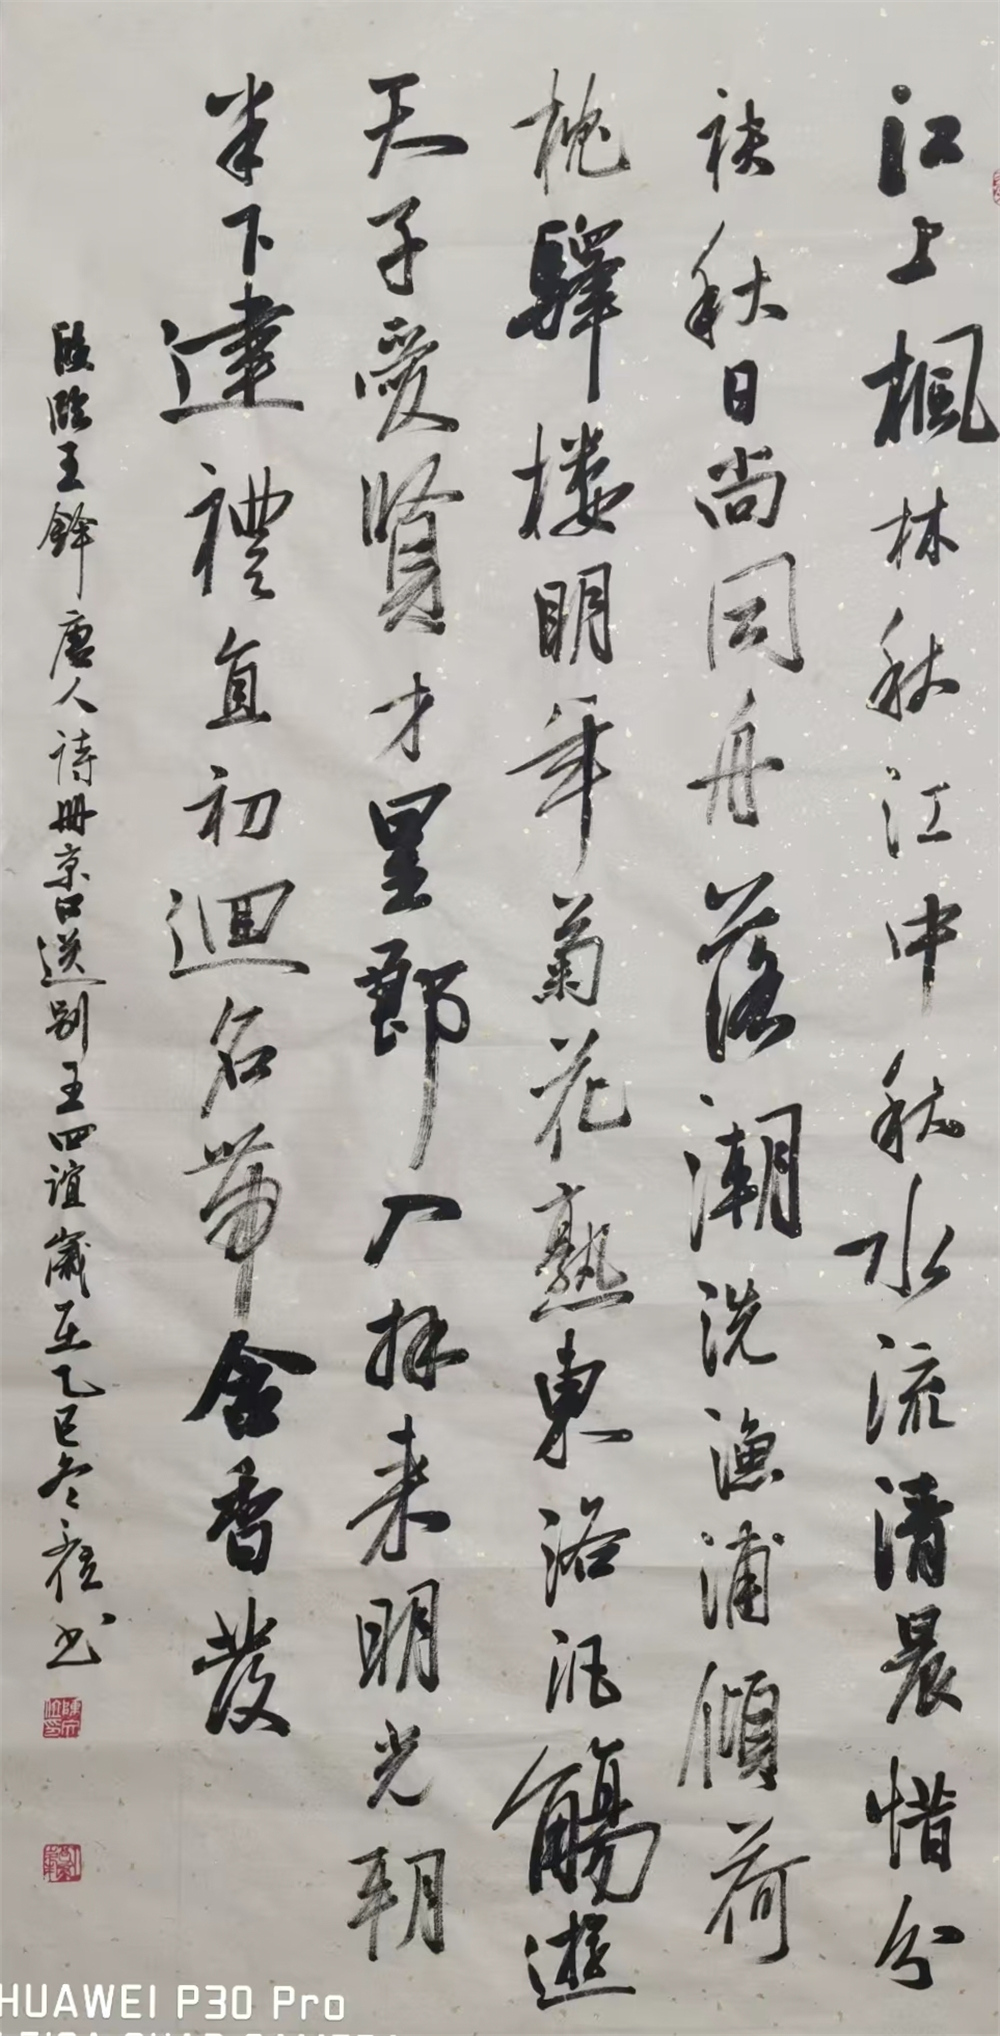 江上楓林秋江中秋水流清晨惜分
袂秋日尚同舟落潮洗漁浦傾荷
枕驛樓明年菊花熟東洛泛觴遊
天子愛賢才星郎入拜来明光朝
半下建禮直初迴名帶含香發
臨王鐸唐人詩册京口送别王四誼歲在乙巳冬 書
HUAWEI P30 Pro